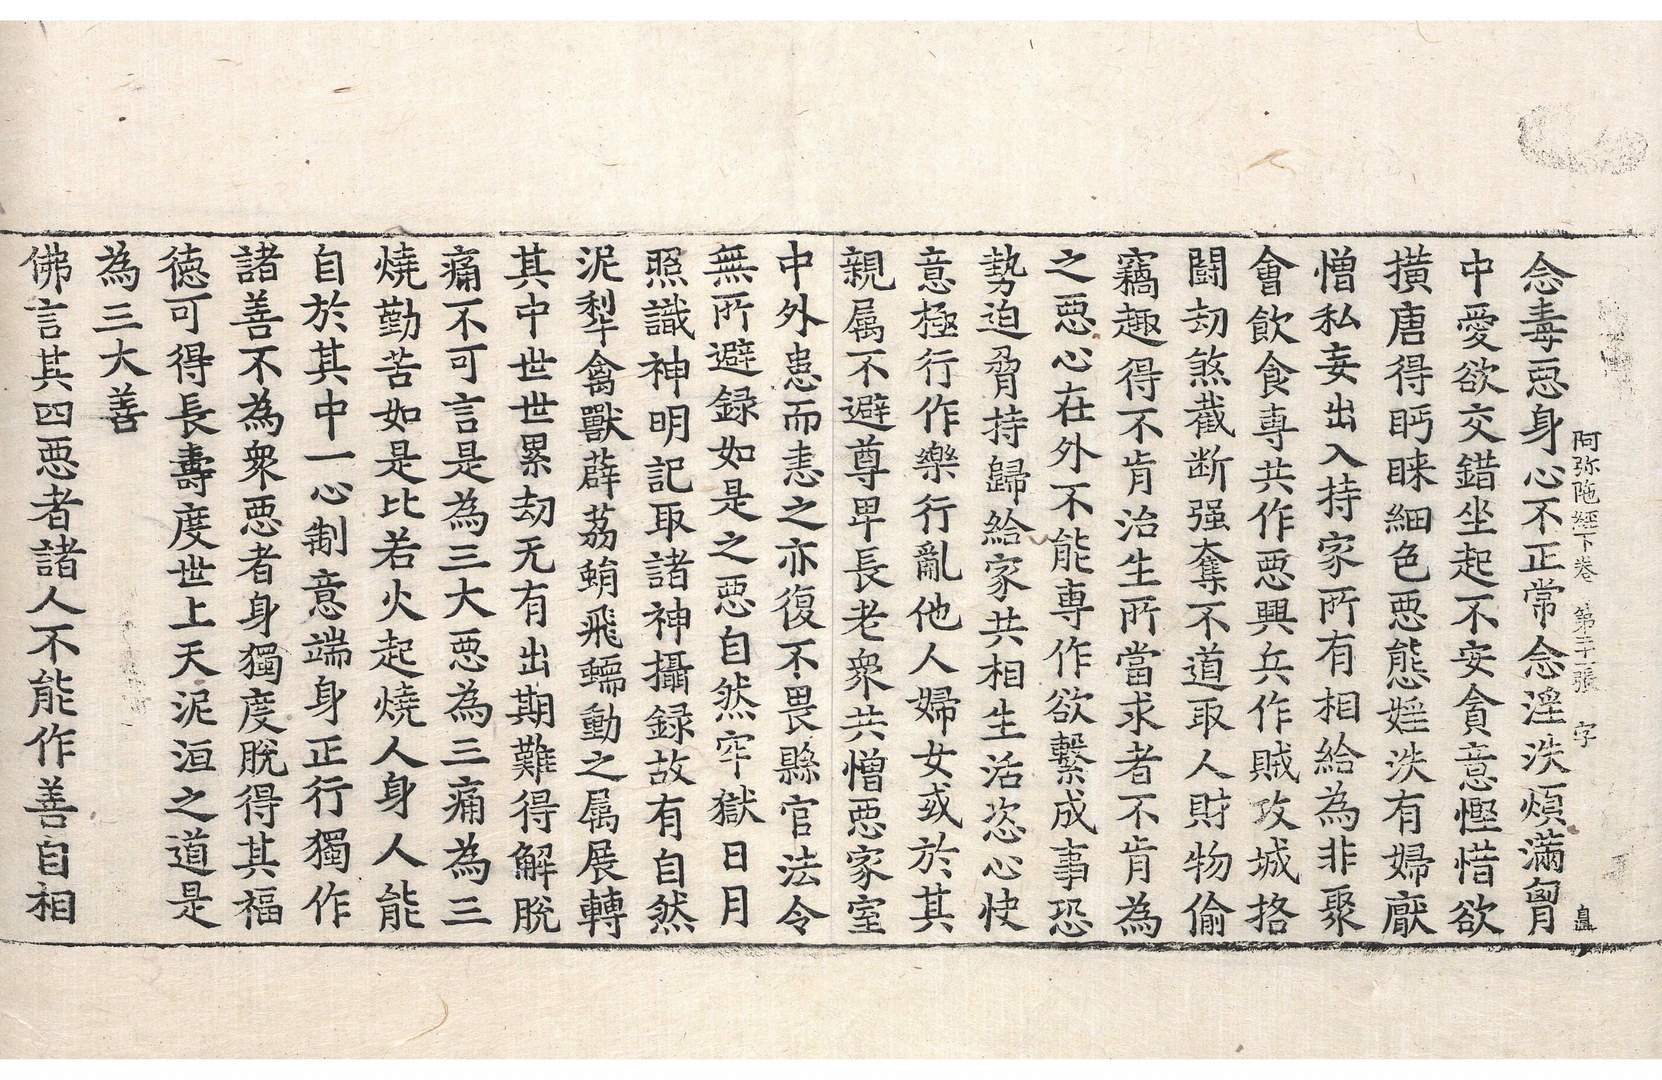 阿弥陁經下卷 第二十一張 字 直
念毒惡身心不正常念淫泆煩滿胷
中愛欲交錯坐起不安貪意慳惜欲
撗唐得眄睞細色惡態婬泆有婦厭
憎私妄出入持家所有相給為非聚
會飲食専共作惡興兵作賊攻城挌
闘刼煞截断强奪不道取人財物偷
竊趣得不肯治生所當求者不肯為
之惡心在外不能専作欲繫成事恐
勢迫脅持歸給家共相生活恣心快
意極行作樂行亂他人婦女或於其
親属不避尊卑長老衆共憎惡家室
中外患而恚之亦復不畏縣官法令
無所避録如是之惡自然牢獄日月
照識神明記取諸神攝録故有自然
泥犁禽獸薜荔蜎飛蠕動之属展轉
其中世世累劫无有出期難得解脫
痛不可言是為三大惡為三痛為三
燒勤苦如是比若火起燒人身人能
自於其中一心制意端身正行獨作
諸善不為衆惡者身獨度脫得其福
德可得長壽度世上天泥洹之道是
為三大善
佛言其四惡者諸人不能作善自相